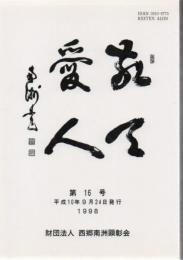 ISSN 0910-9773
KEITEN AIJIN
敬天
愛人
南洲書
第 16 号
平成10年9月24日発行
1998
財団法人 西郷南洲顕彰会